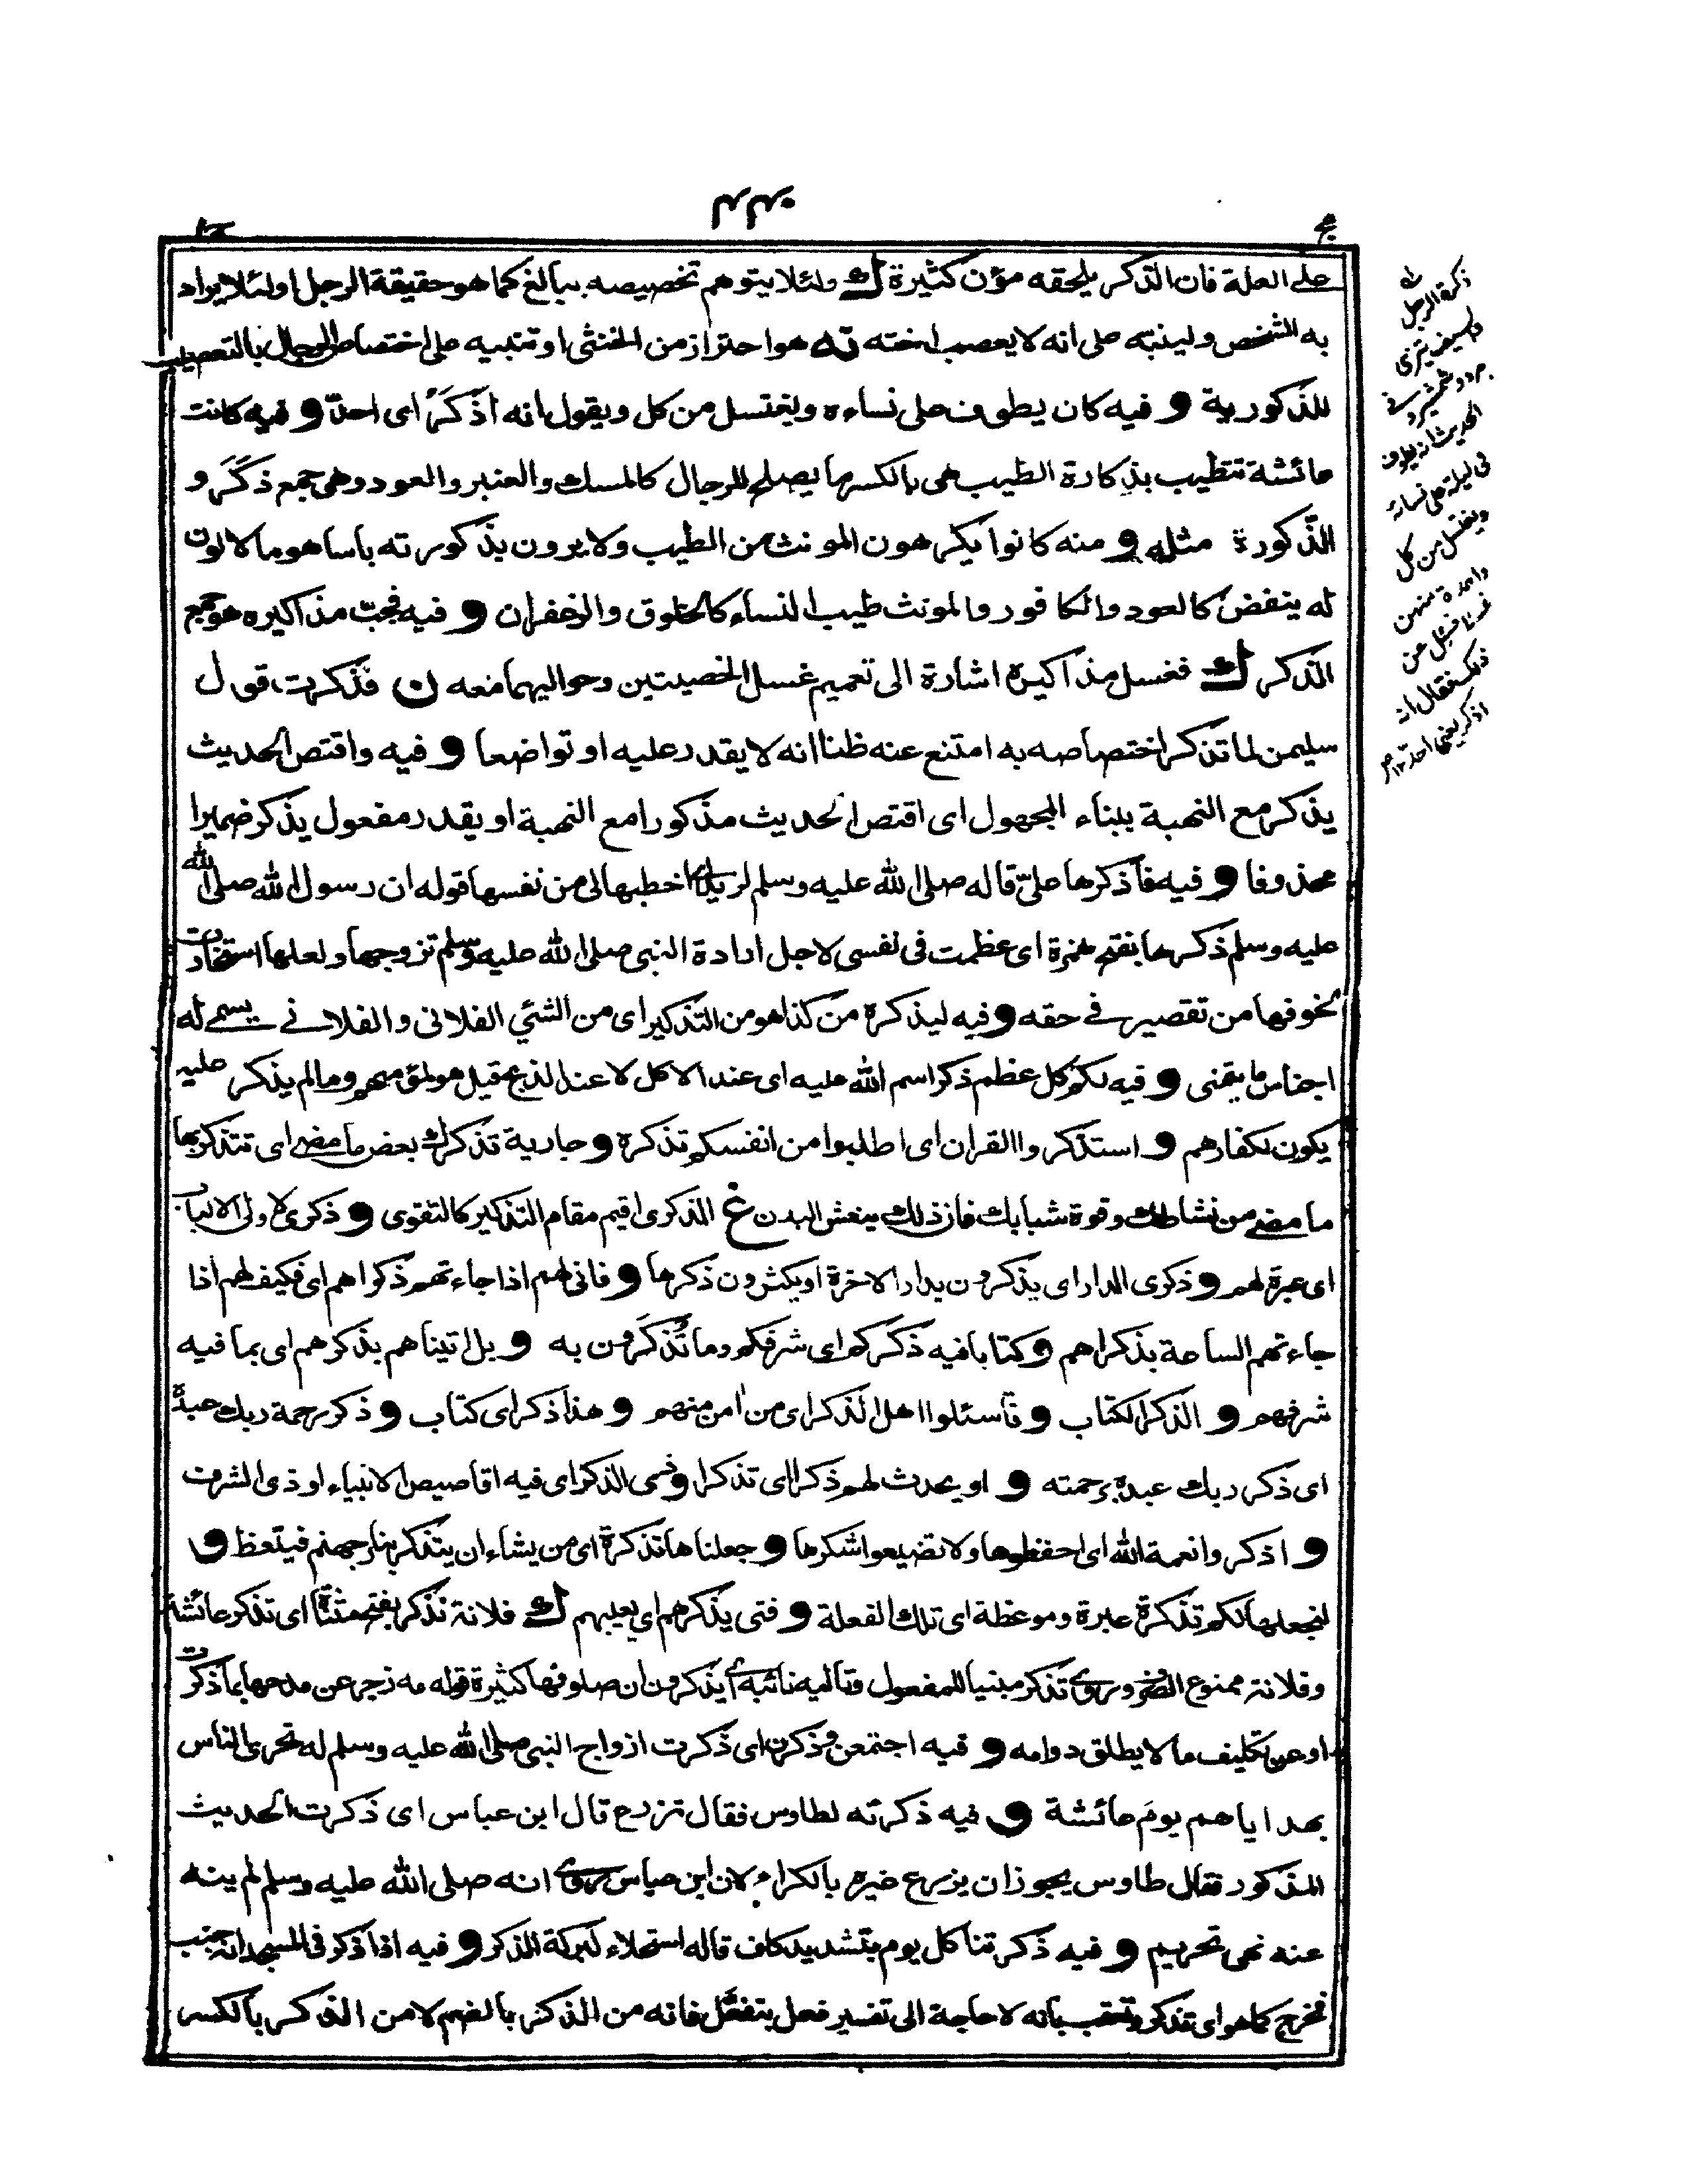 على العلة فان الذكر يلحقه مؤن كثيرة ك ولئلا يتوهم تخصيصه ببالغ كما هو حقيقة الرجل او لئلا يراد
به الشخص ولينبّه على انه لا يعصب اخته نه هو احتراز من الخنثى او تنبيه على اختصاص الرجال بالتعصيب
للذكورية و فيه كان يطوف على نساءه ويغتسل من كل ويقول انه اذكَرُ اى احدّ و فيه كانت
عائشة تتطيب بذكارة الطيب هى بالكسر ما يصلح للرجال كالمسك والعنبر والعود وهى جمع ذَكَر و
الذّكورة مثله و منه كانوا يكرهون المونث من الطيب ولا يرون بذكورته باسا هو ما لا لون
له ينفض كالعود والكافور والمونث طيب النساء كالخلوق والزعفران و فيه فجبّ مذاكيره هو جمع
الذكر ك فغسل مذاكيره اشارة الى تعميم غسل الخصيتين وحواليهما معه ن فذكرت قول
سليمن لما تذكر اختصاصه به امتنع عنه ظنا انه لا يقدر عليه او تواضعا و فيه واقتص الحديث
يذكر مع النهبة ببناء المجهول اى اقتص الحديث مذكورا مع النهبة او يقدر مفعول يذكر ضميرا
محذوفا و فيه فاذكرها علىّ قاله صلى الله عليه وسلم لزيد اى اخطبها لى من نفسها قوله ان رسول الله صلى الله
عليه وسلم ذكرها بفتح همزة اى عظمت فى نفسى لاجل ارادة النبى صلى الله عليه وسلم تزوجها ولعلها استخارت
لخوفها من تقصير فى حقه و فيه ليذكره من كذا هو من التذكير اى من الشئ الفلانى والفلانى يسمى له
اجناس ما يتمنى و فيه لكم كل عظم ذكر اسم الله عليه اى عند الاكل لا عند الذبح قيل هو لمؤمنيهم وما لم يذكر عليه
يكون لكفارهم و استذكروا القران اى اطلبوا من انفسكم تذكره و جارية تذكرك بعض ما مضى اى تتذكر بها
ما مضى من نشاطك وقوة شبابك فان ذلك ينعش البدن غ الذكرى اقيم مقام التذكير كالتقوى و ذكرى لاولى الالباب
اى عبرة لهم و ذكرى الدار اى يذكرون بدار الاخرة او يكثرون ذكرها و فانى لهم اذا جاءتهم ذكراهم اى فكيف لهم اذا
جاءتهم الساعة بذكراهم و كتابا فيه ذكركم اى شرفكم وما تُذكَّرون به و بل اتيناهم بذكرهم اى بما فيه
شرفهم و الذكر الكتاب و فاسئلوا اهل الذكر اى من امن منهم و هذا ذكر اى كتاب و ذكر رحمة ربك عبدَه
اى ذكر ربك عبده برحمته و او يحدث لهم ذكرا اى تذكرا و ذى الذكر اى فيه اقاصيص الانبياء او ذى الشرف
و اذكروا نعمة الله اى احفظوها ولا تضيعوا شكرها و جعلناها تذكرة اى من يشاء ان يتذكر بنار جهنم فيتعظ و
لنجعلها لكم تذكرة عبرة وموعظة اى تلك الفعلة و فتى يذكرهم اى يعيبهم ك فلانة تذكر بفتح مثناة اى تذكر عائشة
وفلانة ممنوع الصرف وروى تذكر مبنيا للمفعول وتاليه نائبه اى يذكرون ان صلوتها كثيرة قوله مه زجر عن مدحها بما ذكرت
او عن تكليف ما لا يطاق دوامه و فيه اجتمعن وذكرن اى ذكرت ازواج النبى صلى الله عليه وسلم له تحرى الناس
بهداياهم يومَ عائشة و فيه ذكرته لطاوس فقال تزرع قال ابن عباس اى ذكرت الحديث
المذكور فقال طاوس يجوز ان يزرع غيره بالكراء لان ابن عباس روى انه صلى الله عليه وسلم لم ينه
عنه نهى تحريم و فيه ذكرتنا كل يوم بتشديد كاف قاله استحلاء لبركة الذكر و فيه اذا ذكر فى المسجد انه جنب
فخرج كما هو اى تذكر وتعقب بانه لا حاجة الى تفسير فعل بتفعّل فانه من الذكر بالضم لا من الذكر بالكسر
ذكرة الرجل
الحديث انه يطوف
فى ليلة على نسائه
ويغتسل من كل
واحدة منهن
غسلا فسئل عن
ذلك فقال انه
اذكر يعنى احدّ ١٢